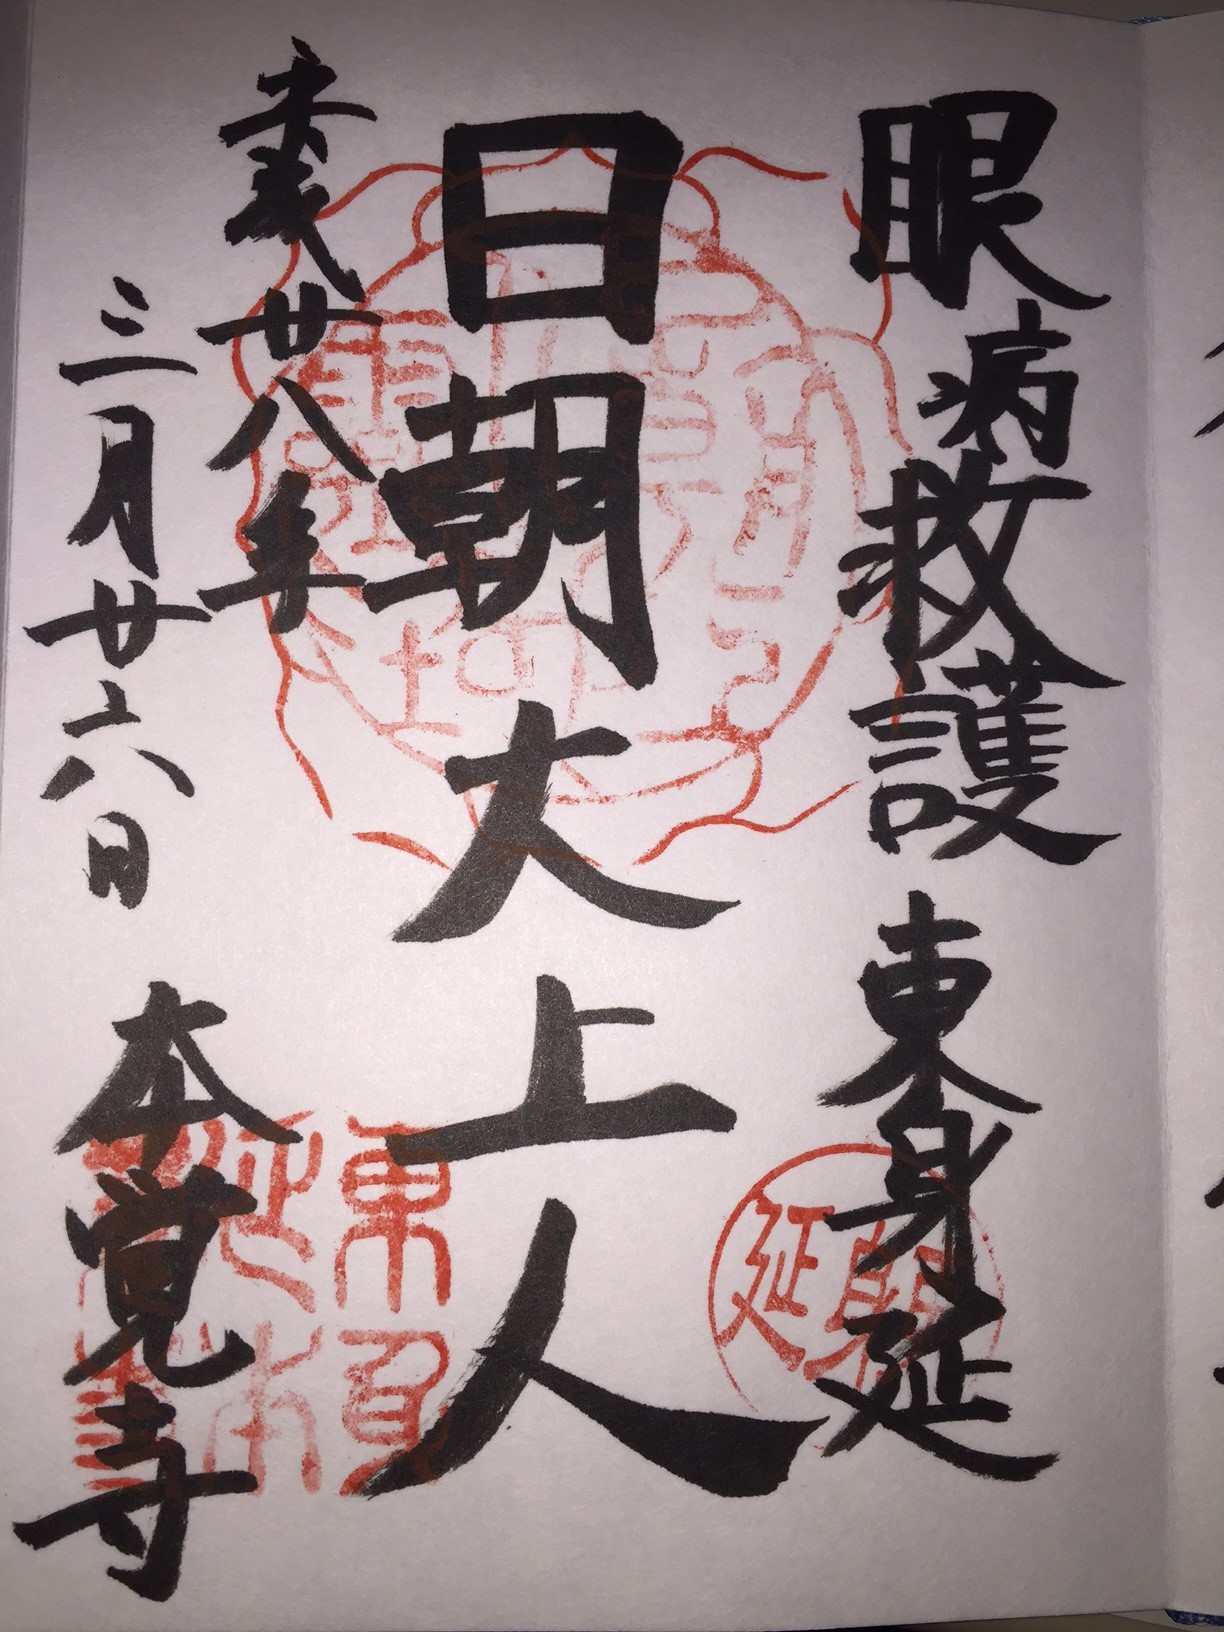 眼病救護 東身延
日朝大上人
平成廿八年
三月廿六日 本覚寺
東身延本
東身延